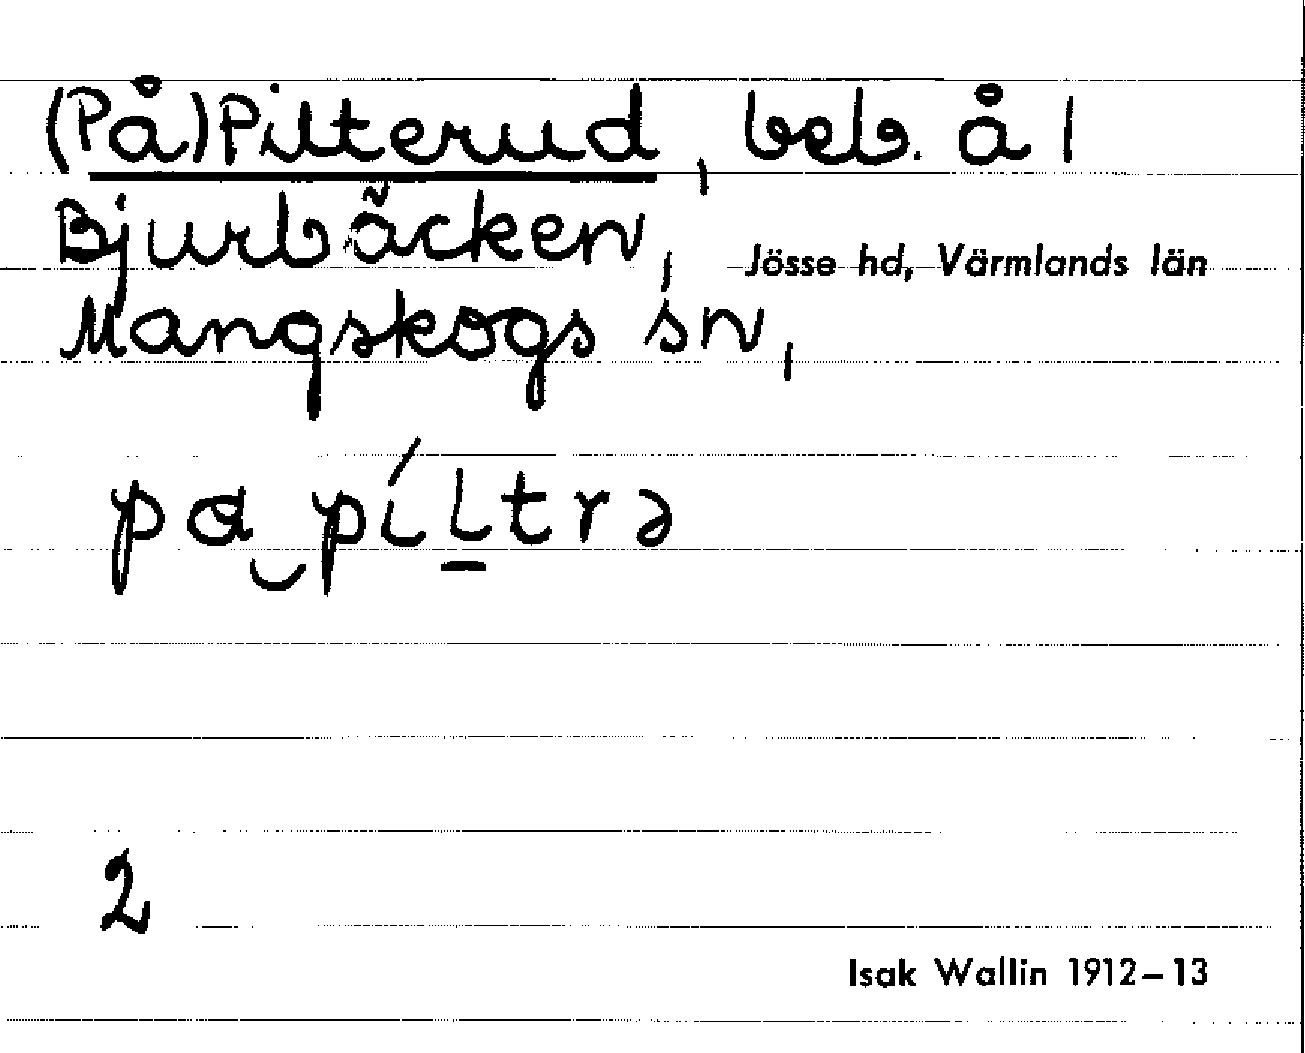 (På)Pilterud, beb. å 1
Bjurbäcken, Jösse hd, Värmlands län
Mangskogs sn,
pa‿píl̲trə
2
Isak Wallin 1912–13